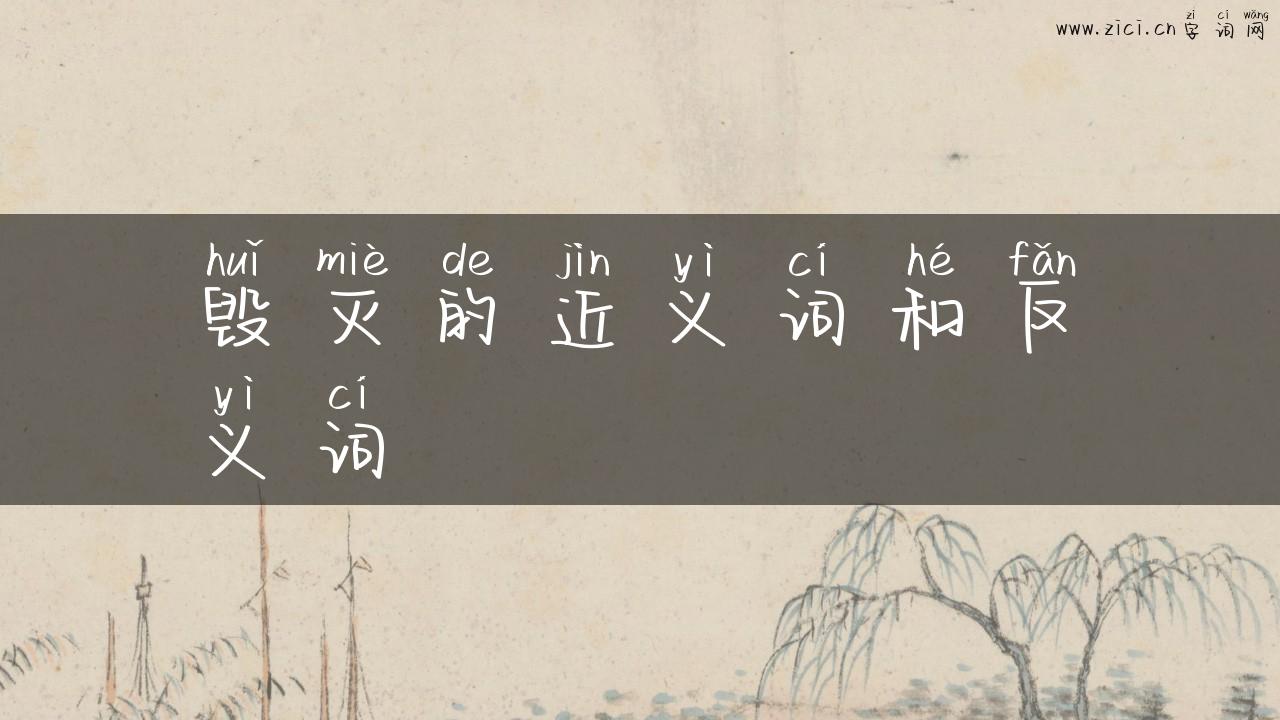 zì cí wǎng
www.zici.cn 字词网
huǐ miè de jìn yì cí hé fǎn
毁灭的近义词和反
yì cí
义词